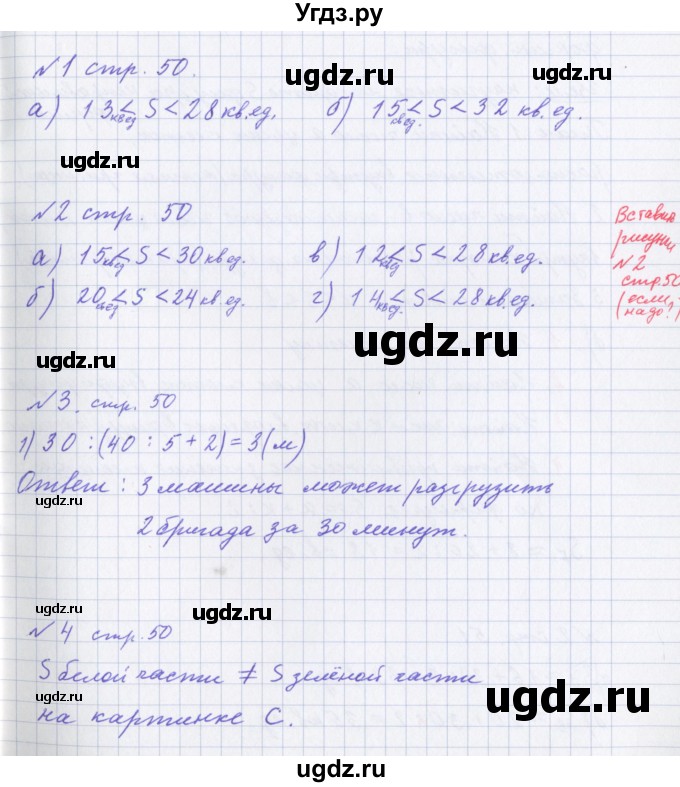 Угдз.ру
№1 стр. 50.
ugdz.ru
а) 13 кв.ед < S < 28 кв.ед. б) 15 кв.ед. < S < 32 кв.ед.
ugdz.ru
№2 стр. 50
а) 15 кв.ед < S < 30 кв.ед. в) 12 кв.ед < S < 28 кв.ед.
б) 20 кв.ед < S < 24 кв.ед. г) 14 кв.ед < S < 28 кв.ед.
Вставка
рисунки
№2
стр.50
(если
надо?)
ugdz.ru
ugdz.ru
№3. стр. 50
1) 30 : (40 : 5 + 2) = 3 (м)
Ответ : 3 машины может разгрузить
ugdz.ru
2 бригада за 30 минут.
ugdz.ru
ugdz.ru
№4 стр. 50
S белой части ≠ S зелёной части
ugdz.ru
на картинке С.
ugdz.ru
ugdz.ru